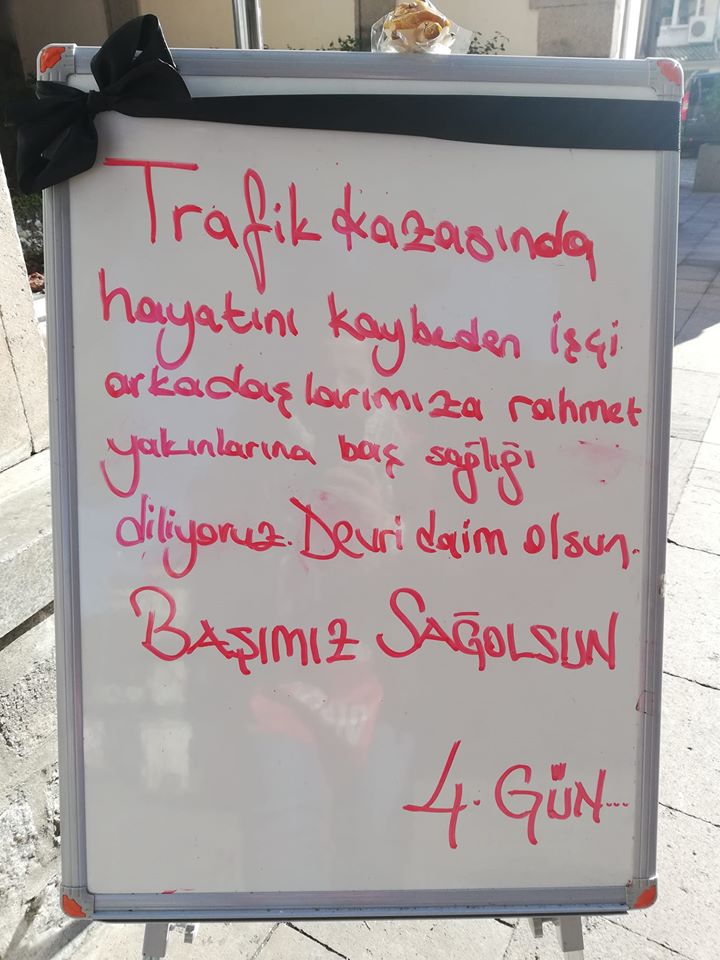 Trafik kazasında
hayatını kaybeden işçi
arkadaşlarımıza rahmet
yakınlarına baş sağlığı
diliyoruz. Devri daim olsun.
BAŞIMIZ SAĞOLSUN
4. GÜN...